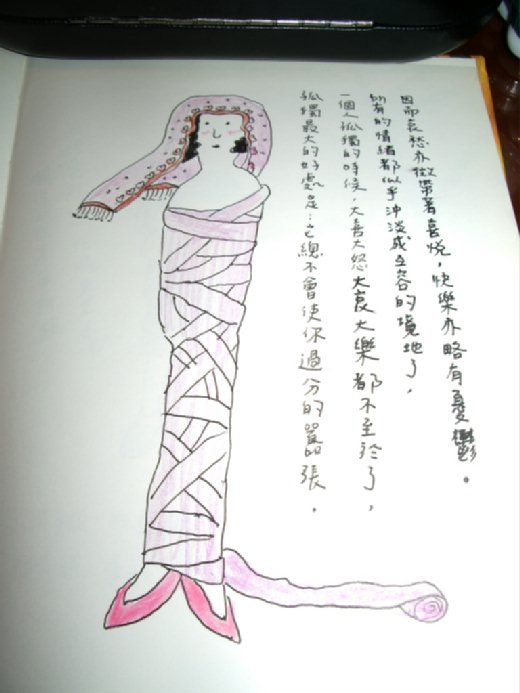 孤獨最大的好處是：它總不會使你過分的囂張，
一個人孤獨的時候，大喜大怒大哀大樂都不至於了，
所有的情緒都似乎沖淡成互容的境地了，
因而哀愁亦微帶著喜悅，快樂亦略有憂鬱。